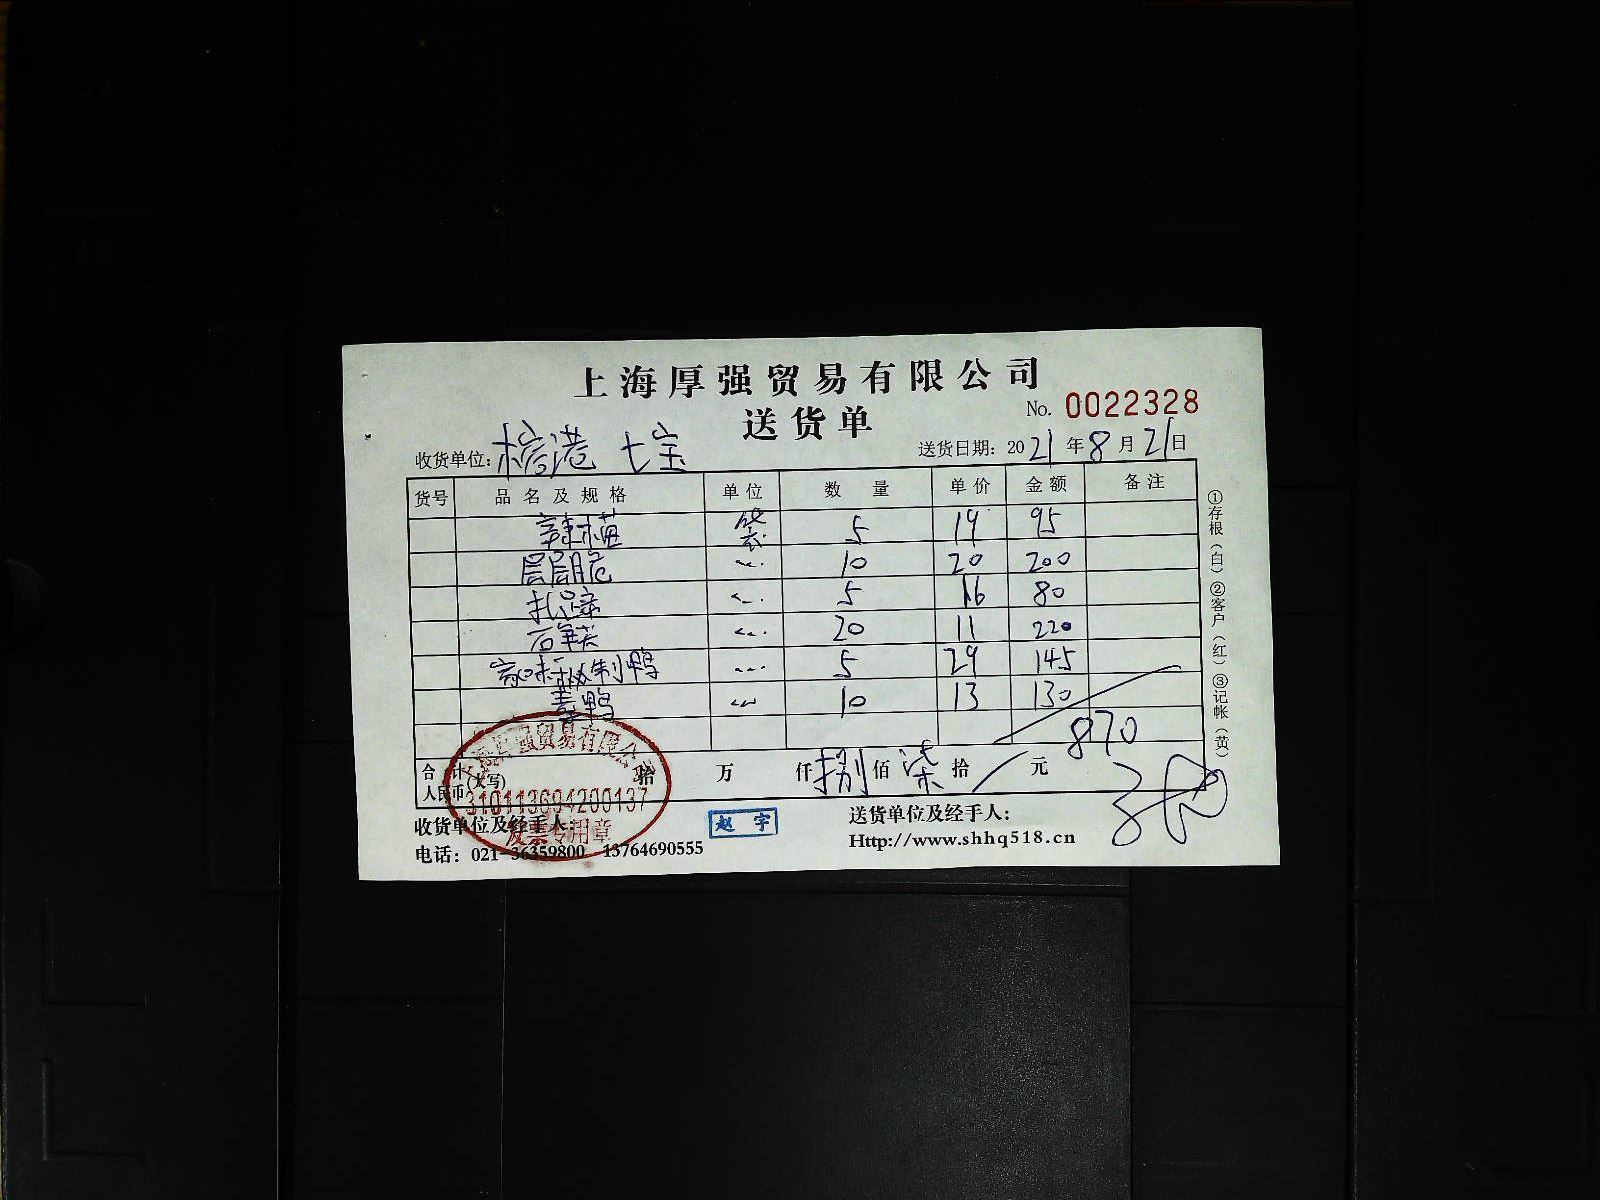 上海厚强贸易有限公司
送货单
No. 0022328
收货单位: 港 七宝
送货日期: 2021年8月21日
货号 品名及规格 单位 数量 单价 金额 备注
辣 袋 5 19 95
层层脆 〃 10 20 200
扎蹄 〃 5 16 80
〃 20 11 220
味秘制鸭 〃 5 29 145
鸭 〃 10 13 130
870
合计 人民币(大写) 拾 万 仟 捌 佰 柒 拾 元
上海厚强贸易有限公司
310113694200137
发票专用章
收货单位及经手人:
赵宇
送货单位及经手人:
电话: 021-36359800 13764690555
Http://www.shhq518.cn
①存根(白)②客户(红)③记帐(黄)